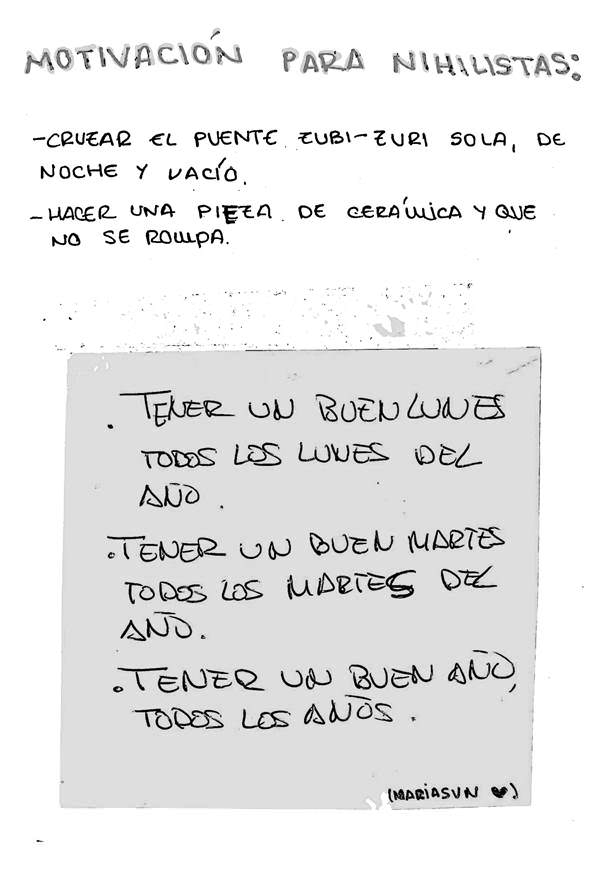 MOTIVACIÓN PARA NIHILISTAS:
-CRUZAR EL PUENTE ZUBI-ZURI SOLA, DE
NOCHE Y VACÍO.
-HACER UNA PIEZA DE CERÁMICA Y QUE
NO SE ROMPA.
. TENER UN BUEN LUNES
TODOS LOS LUNES DEL
AÑO.
. TENER UN BUEN MARTES
TODOS LOS MARTES DEL
AÑO.
. TENER UN BUEN AÑO,
TODOS LOS AÑOS.
(MARIASUN ♥)